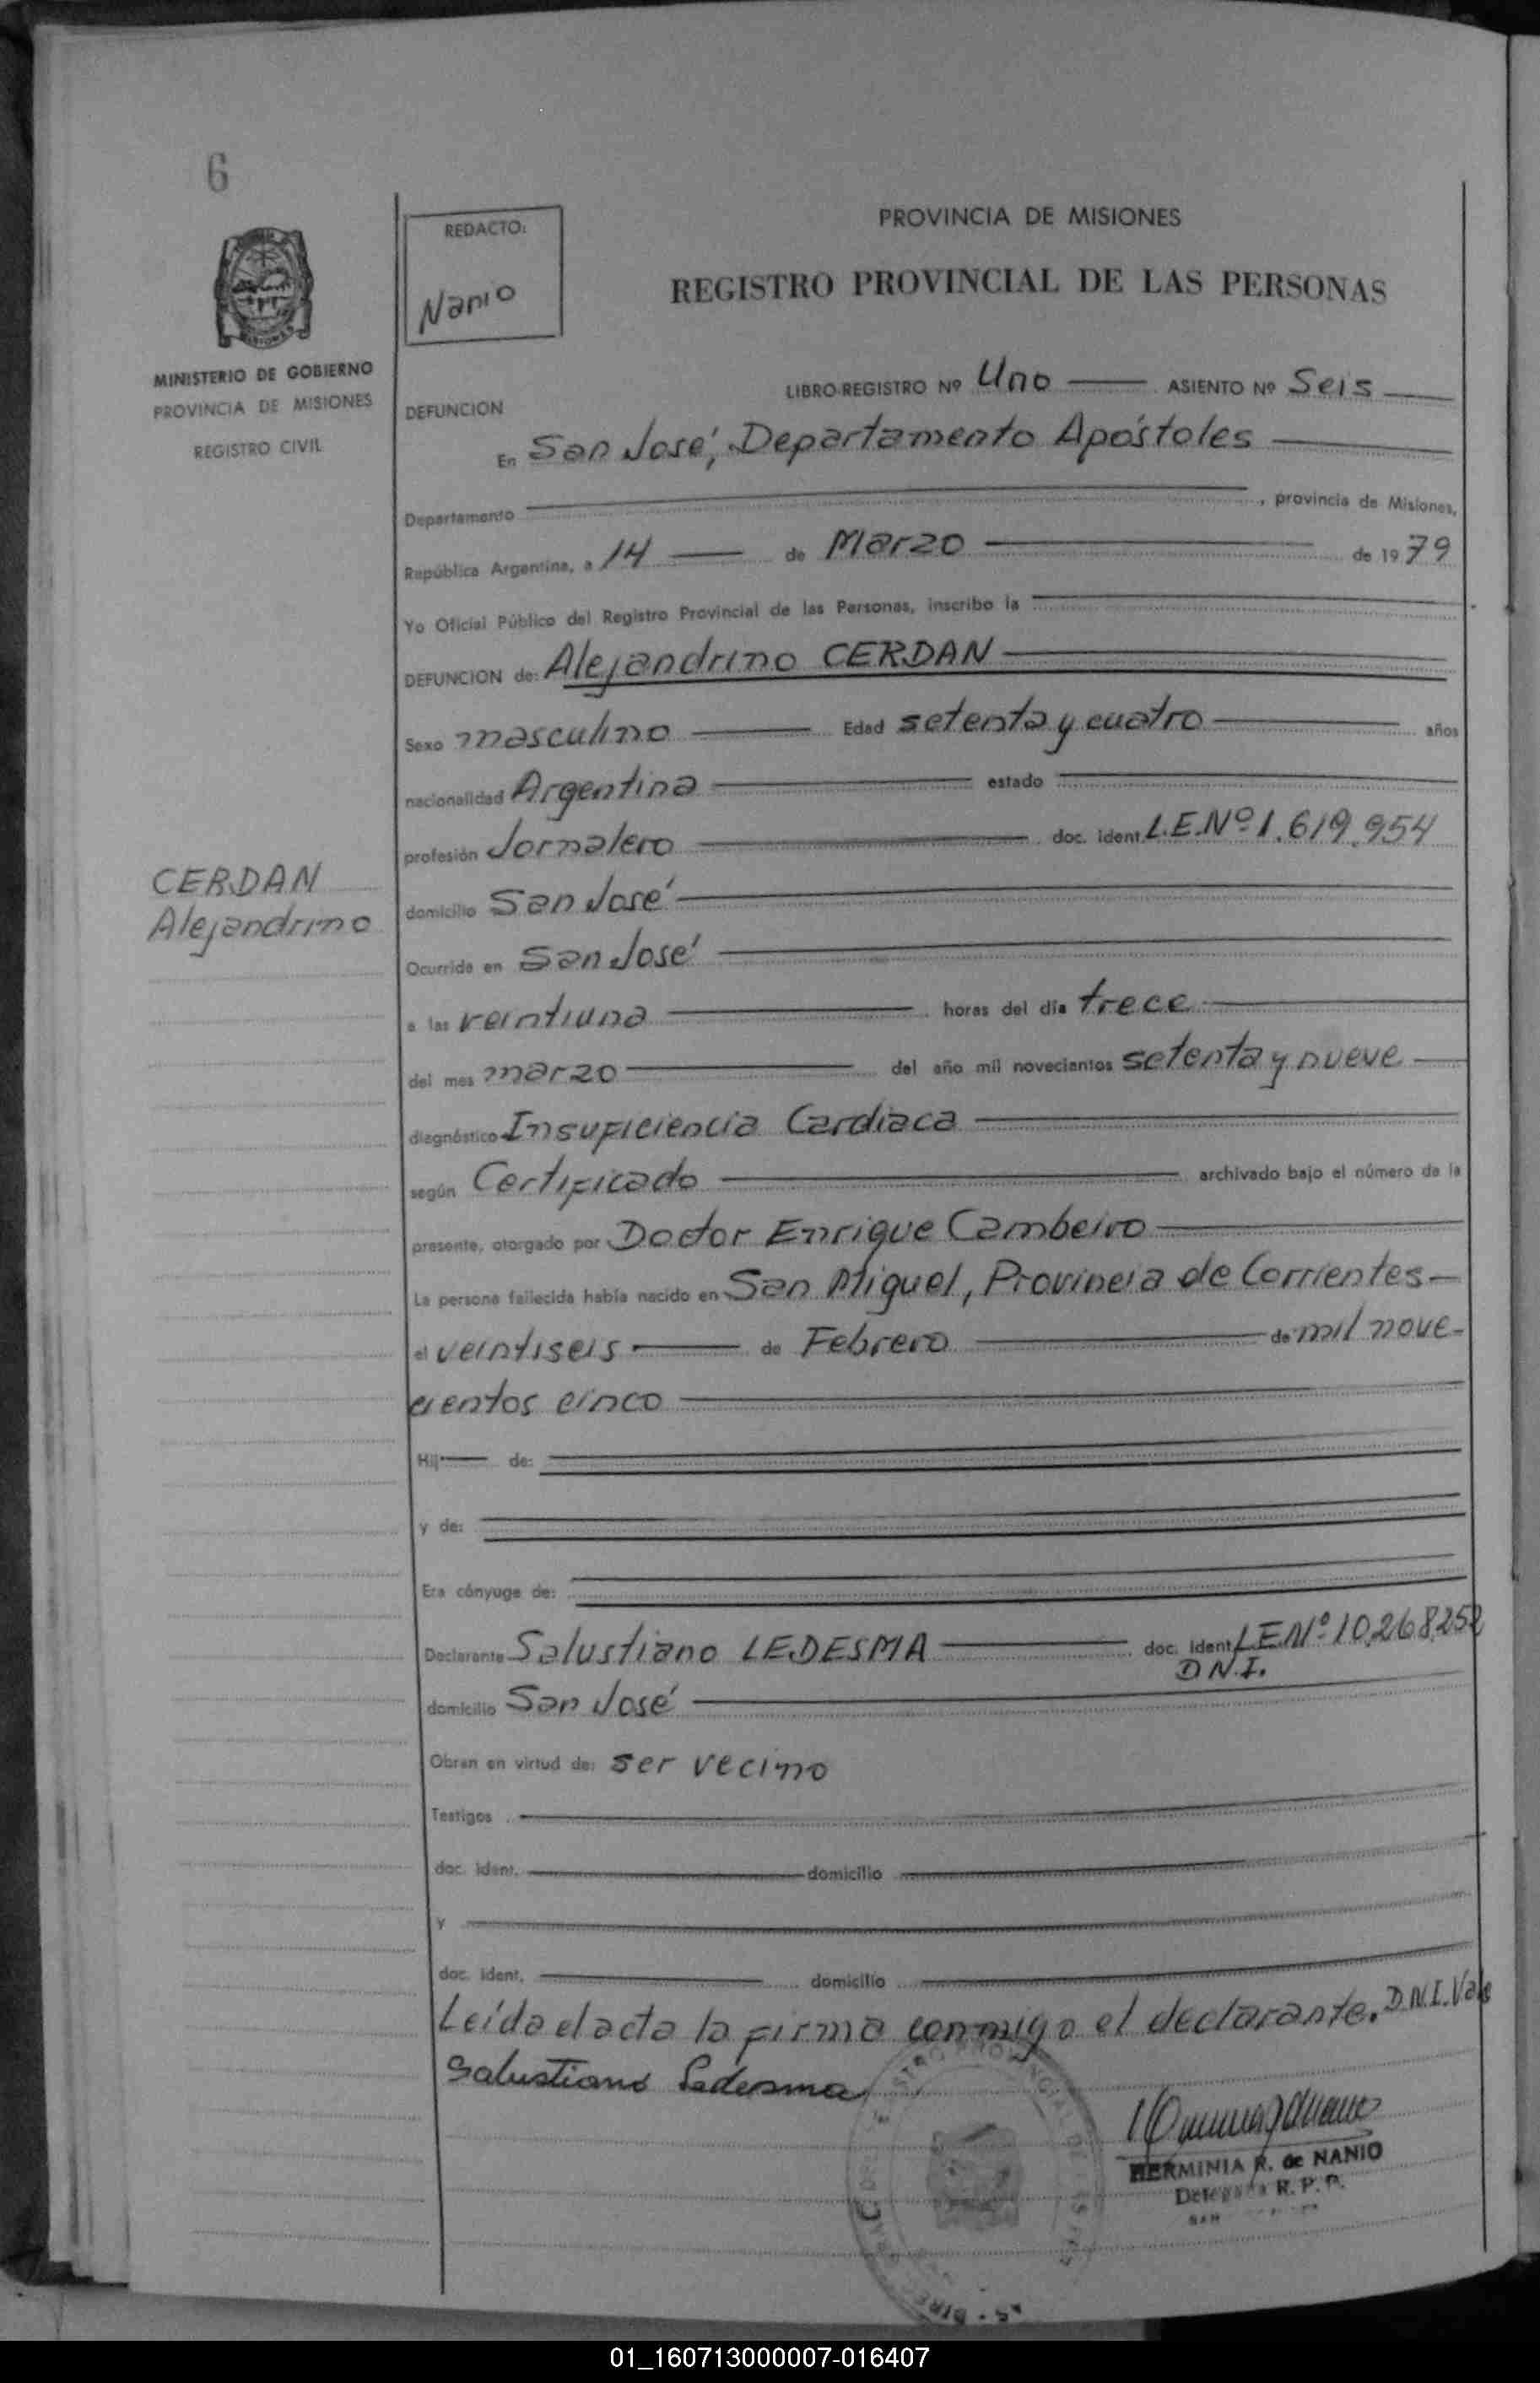 6
REDACTO:
Nanio
PROVINCIA DE MISIONES
REGISTRO PROVINCIAL DE LAS PERSONAS
MINISTERIO DE GOBIERNO
PROVINCIA DE MISIONES
REGISTRO CIVIL
LIBRO-REGISTRO Nº Uno ASIENTO Nº Seis
DEFUNCION
En San José, Departamento Apóstoles
Departamento , provincia de Misiones,
República Argentina, a 14 de Marzo de 1979
Yo Oficial Público del Registro Provincial de las Personas, inscribo la
DEFUNCION de: Alejandrino CERDAN
Sexo masculino Edad setenta y cuatro años
nacionalidad Argentina estado
profesión Jornalero doc. ident. L.E.Nº 1.619.954
CERDAN
Alejandrino
domicilio San José
Ocurrida en San José
a las veintiuna horas del día trece
del mes marzo del año mil novecientos setenta y nueve
diagnóstico Insuficiencia Cardiaca
según Certificado archivado bajo el número de la
presente, otorgado por Doctor Enrique Cambeiro
La persona fallecida había nacido en San Miguel, Provincia de Corrientes
el veintiseis de Febrero de mil nove-
cientos cinco
Hij de:
y de:
Era cónyuge de:
Declarante Salustiano LEDESMA doc. ident. LE Nº 10.268.252
D.N.I.
domicilio San José
Obran en virtud de: ser vecino
Testigos
doc. ident. domicilio
y
doc. ident. domicilio
Leída el acta la firma conmigo el declarante. D.N.I. Vale
Salustiano Ledesma
HERMINIA R. de NANIO
Delegada R. P. P.
SAN
01_160713000007-016407